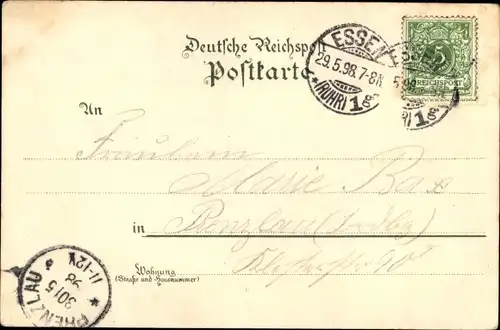 Deutsche Reichspost
Postkarte
ESSEN
29.5.98.7-8N
*(RUHR)1g
5
REICHSPOST
An
Fräulein
Marie Bax
in Prenzlau
Wohnung
(Straße und Hausnummer)
PRENZLAU
30/5
98
11-12V